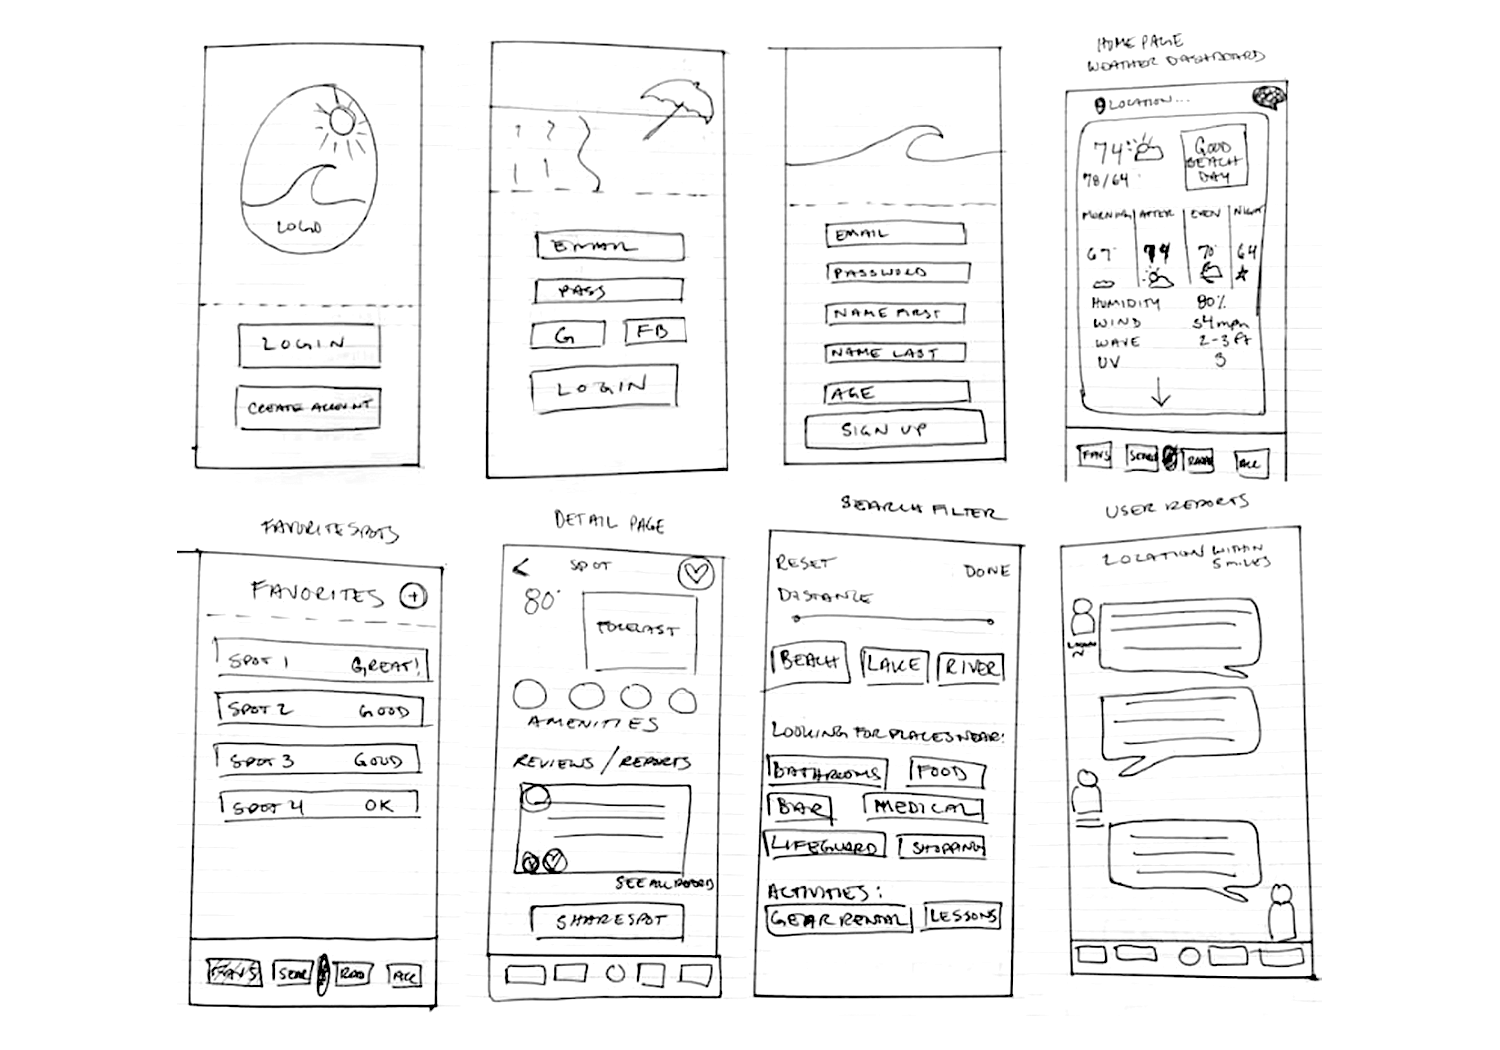 LOGO
LOGIN
CREATE ACCOUNT
EMAIL
PASS
G FB
LOGIN
EMAIL
PASSWORD
NAME FIRST
NAME LAST
AGE
SIGN UP
HOME PAGE
WEATHER DASHBOARD
LOCATION...
74°
78/64
GOOD
BEACH
DAY
MORNING AFTER EVEN NIGHT
67° 74 70° 64
HUMIDITY 80%
WIND 54mph
WAVE 2-3 ft
UV 3
FAVS ACC
FAVORITE SPOTS
FAVORITES +
SPOT 1 GREAT!
SPOT 2 GOOD
SPOT 3 GOOD
SPOT 4 OK
FAVS SEAR RAD ACC
DETAIL PAGE
< SPOT
80°
FORECAST
AMENITIES
REVIEWS / REPORTS
SEE ALL
SHARE SPOT
SEARCH FILTER
RESET DONE
DISTANCE
BEACH LAKE RIVER
LOOKING FOR PLACES NEAR:
BATHROOMS FOOD
BAR MEDICAL
LIFEGUARD SHOPPING
ACTIVITIES:
GEAR RENTAL LESSONS
USER REPORTS
LOCATION WITHIN
5 MILES